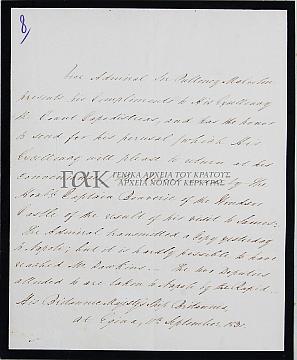 8
Vice Admiral Sir Pulteney Malcolm
presents his Compliments to His Excellency
the Count Capodistrias, and has the honor
to send for his perusal (which His
Excellency will please to return at his
ΓΑΚ ΓΕΝΙΚΑ ΑΡΧΕΙΑ ΤΟΥ ΚΡΑΤΟΥΣ
ΑΡΧΕΙΑ ΝΟΜΟΥ ΚΕΡΚΥΡΑΣ
by The
Honble Captain Bouverie of the Windsor
Castle of the result of his visit to Samos;
The Admiral transmitted a Copy yesterday
to Napoli, but it is hardly possible to have
reached Mr Dawkins. The two Deputies
alluded to are taken to Napoli by the Rapid.
His Britannic Majesty's Ship Britannia,
At Egina, September